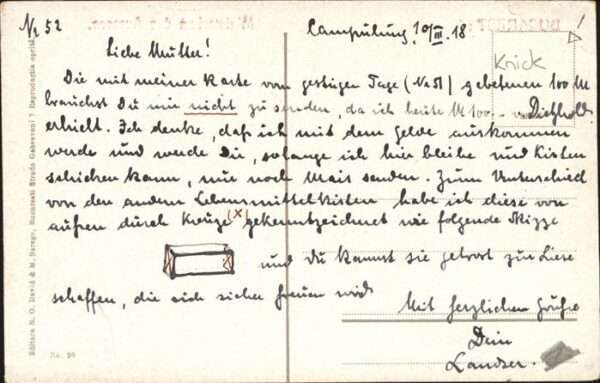 No 52
Câmpulung, 10/III. 18
Knick
Liebe Mutter!
Die mit meiner Karte vom gestrigen Tage (No 51) gebetenen 100 M
brauchst Du mir nicht zu senden, da ich heute M 100.- Dietzhold
erhielt. Ich denke, daß ich mit dem Gelde auskommen
werde und werde Dir, solange ich hier bleibe und Kisten
schicken kann, nur noch Mais senden. Zum Unterschied
von den andern Lebensmittelkisten habe ich diese von
außen durch Kreuze (x) gekennzeichnet wie folgende Skizze
und du kannst sie getrost zur Liese
schaffen, die sich sicher freuen wird
Mit herzlichen Grüßen
Dein
Landser.
No. 99